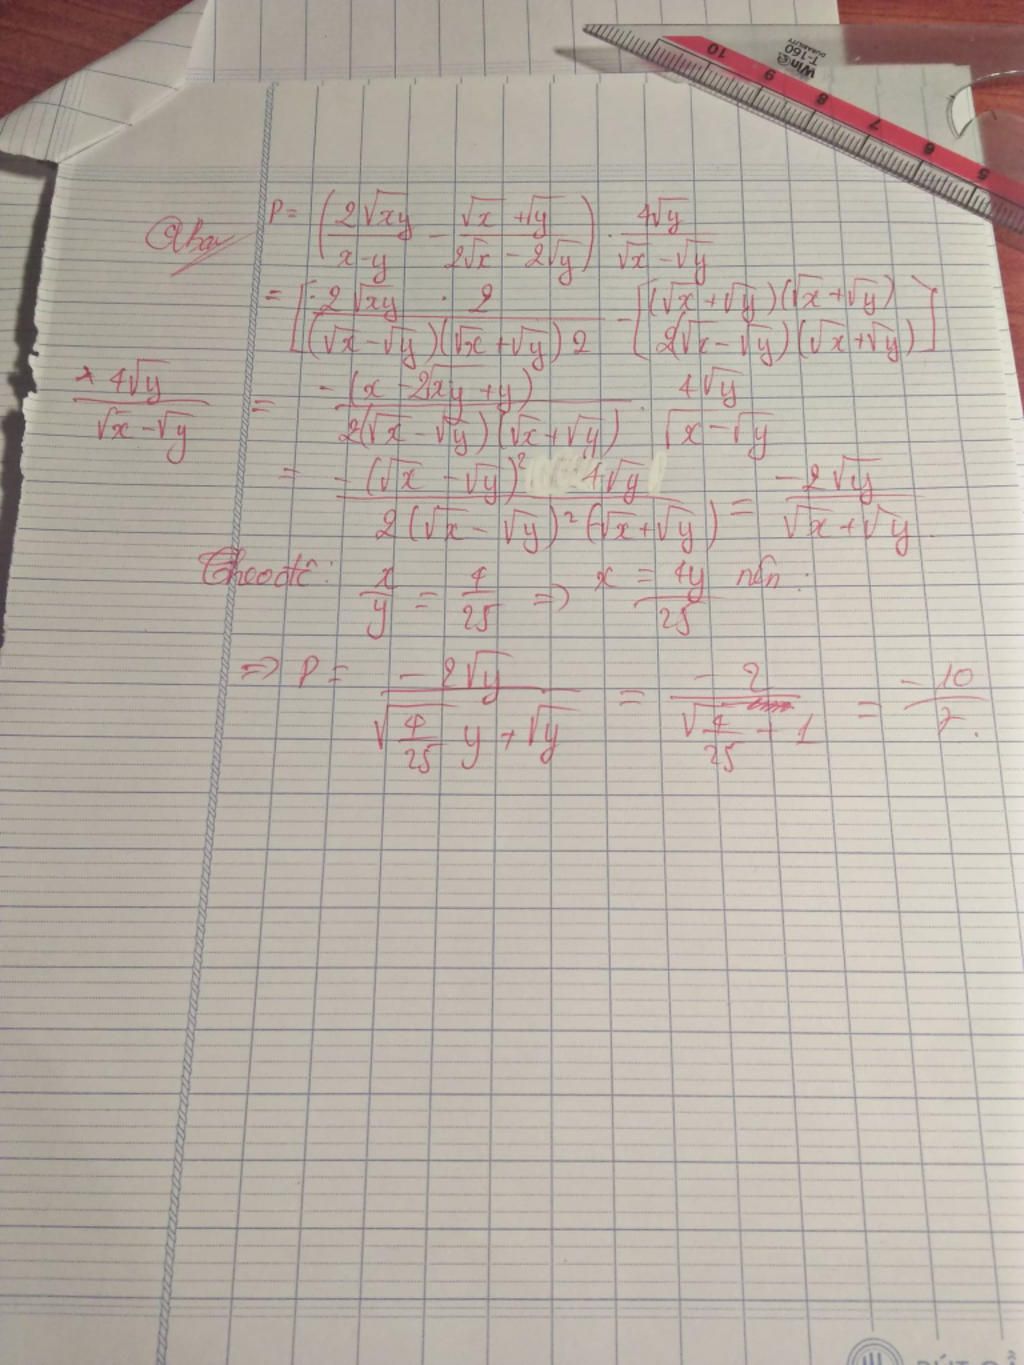 10 9 8 7 6 5
Win T-160
DURABILITY
P = (2√xy / x-y - √x + √y / 2√x - 2√y) . 4√y / √x - √y
= [2√xy . 2 / (√x - √y)(√x + √y) 2 - [(√x + √y)(√x + √y) / 2(√x - √y)(√x + √y)]
× 4√y / √x - √y = -(x - 2√xy + y) / 2(√x - √y)(√x + √y) . 4√y / √x - √y
= -(√x - √y)² 4√y / 2(√x - √y)²(√x + √y) = -2√y / √x + √y
Theo đề: x/y = 4/25 => x = 4y/25 nên:
=> P = -2√y / √4/25 y + √y = -2 / √4/25 + 1 = -10/7.